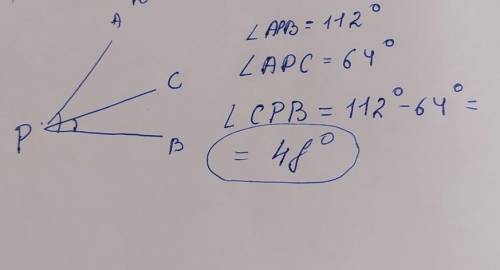 A
C
P
B
∠APB = 112°
∠APC = 64°
∠CPB = 112° - 64° =
= 48°